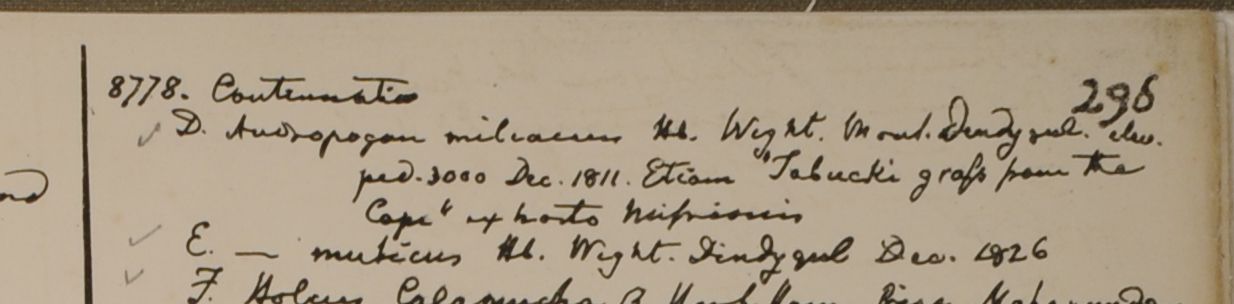 8778. Continuatio
296
D. Andropogon miliaceus Hb. Wight. Mont. Dindygul. elev.
ped. 3000 Dec. 1811. Etiam "Tabucki grass from the
Cape" ex horto Missionis
E. — muticus Hb. Wight. Dindygul Dec. 1826
F. Holcus